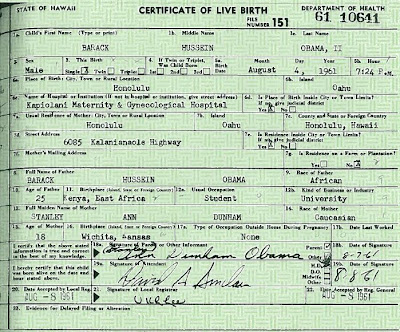 STATE OF HAWAII CERTIFICATE OF LIVE BIRTH DEPARTMENT OF HEALTH
FILE NUMBER 151 61 10641
1a. Child's First Name (Type or print) 1b. Middle Name 1c. Last Name
BARACK HUSSEIN OBAMA, II
2. Sex 3. This Birth 4. If Twin or Triplet, Was Child Born 5a. Birth Date Month Day Year 5b. Hour
Male Single Twin Triplet 1st 2nd 3rd August 4, 1961 7:24 P.M.
6a. Place of Birth: City, Town or Rural Location 6b. Island
Honolulu Oahu
6c. Name of Hospital or Institution (If not in hospital or institution, give street address) 6d. Is Place of Birth Inside City or Town Limits? If no, give judicial district
Kapiolani Maternity & Gynecological Hospital Yes No
7a. Usual Residence of Mother: City, Town or Rural Location 7b. Island 7c. County and State or Foreign Country
Honolulu Oahu Honolulu, Hawaii
7d. Street Address 7e. Is Residence Inside City or Town Limits? If no, give judicial district
6085 Kalanianaole Highway Yes No
7f. Mother's Mailing Address 7g. Is Residence on a Farm or Plantation?
Yes No
8. Full Name of Father 9. Race of Father
BARACK HUSSEIN OBAMA African
10. Age of Father 11. Birthplace (Island, State or Foreign Country) 12a. Usual Occupation 12b. Kind of Business or Industry
25 Kenya, East Africa Student University
13. Full Maiden Name of Mother 14. Race of Mother
STANLEY ANN DUNHAM Caucasian
15. Age of Mother 16. Birthplace (Island, State or Foreign Country) 17a. Type of Occupation Outside Home During Pregnancy 17b. Date Last Worked
18 Wichita, Kansas None
I certify that the above stated information is true and correct to the best of my knowledge. 18a. Signature of Parent or Other Informant Parent Other 18b. Date of Signature
Ann Dunham Obama 8-7-61
I hereby certify that this child was born alive on the date and hour stated above. 19a. Signature of Attendant M.D. D.O. Midwife Other 19b. Date of Signature
David A Sinclair 8 8 61
20. Date Accepted by Local Reg. 21. Signature of Local Registrar 22. Date Accepted by Reg. General
AUG -8 1961 U K L Lee AUG -8 1961
23. Evidence for Delayed Filing or Alteration